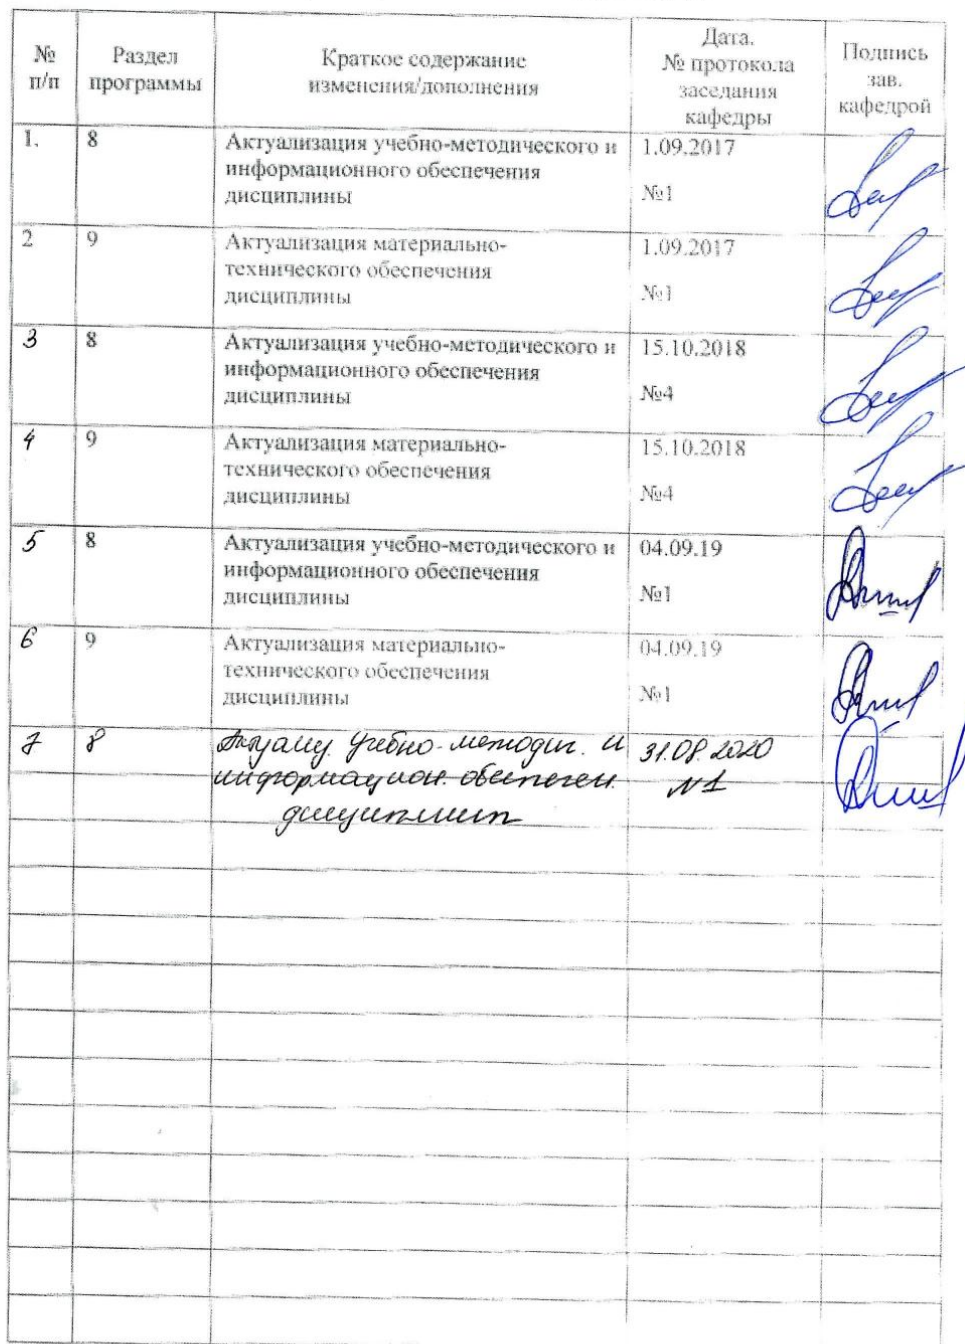 № п/п
Раздел программы
Краткое содержание изменения/дополнения
Дата. № протокола заседания кафедры
Подпись зав. кафедрой
1. 8 Актуализация учебно-методического и 1.09.2017
информационного обеспечения №1
дисциплины
2 9 Актуализация материально- 1.09.2017
технического обеспечения
дисциплины №1
3 8 Актуализация учебно-методического и 15.10.2018
информационного обеспечения
дисциплины №4
4 9 Актуализация материально- 15.10.2018
технического обеспечения
дисциплины №4
5 8 Актуализация учебно-методического и 04.09.19
информационного обеспечения
дисциплины №1
6 9 Актуализация материально- 04.09.19
технического обеспечения
дисциплины №1
7 8 Актуализ. учебно-методич. и 31.08.2020
информацион. обеспечен. №1
дисциплин